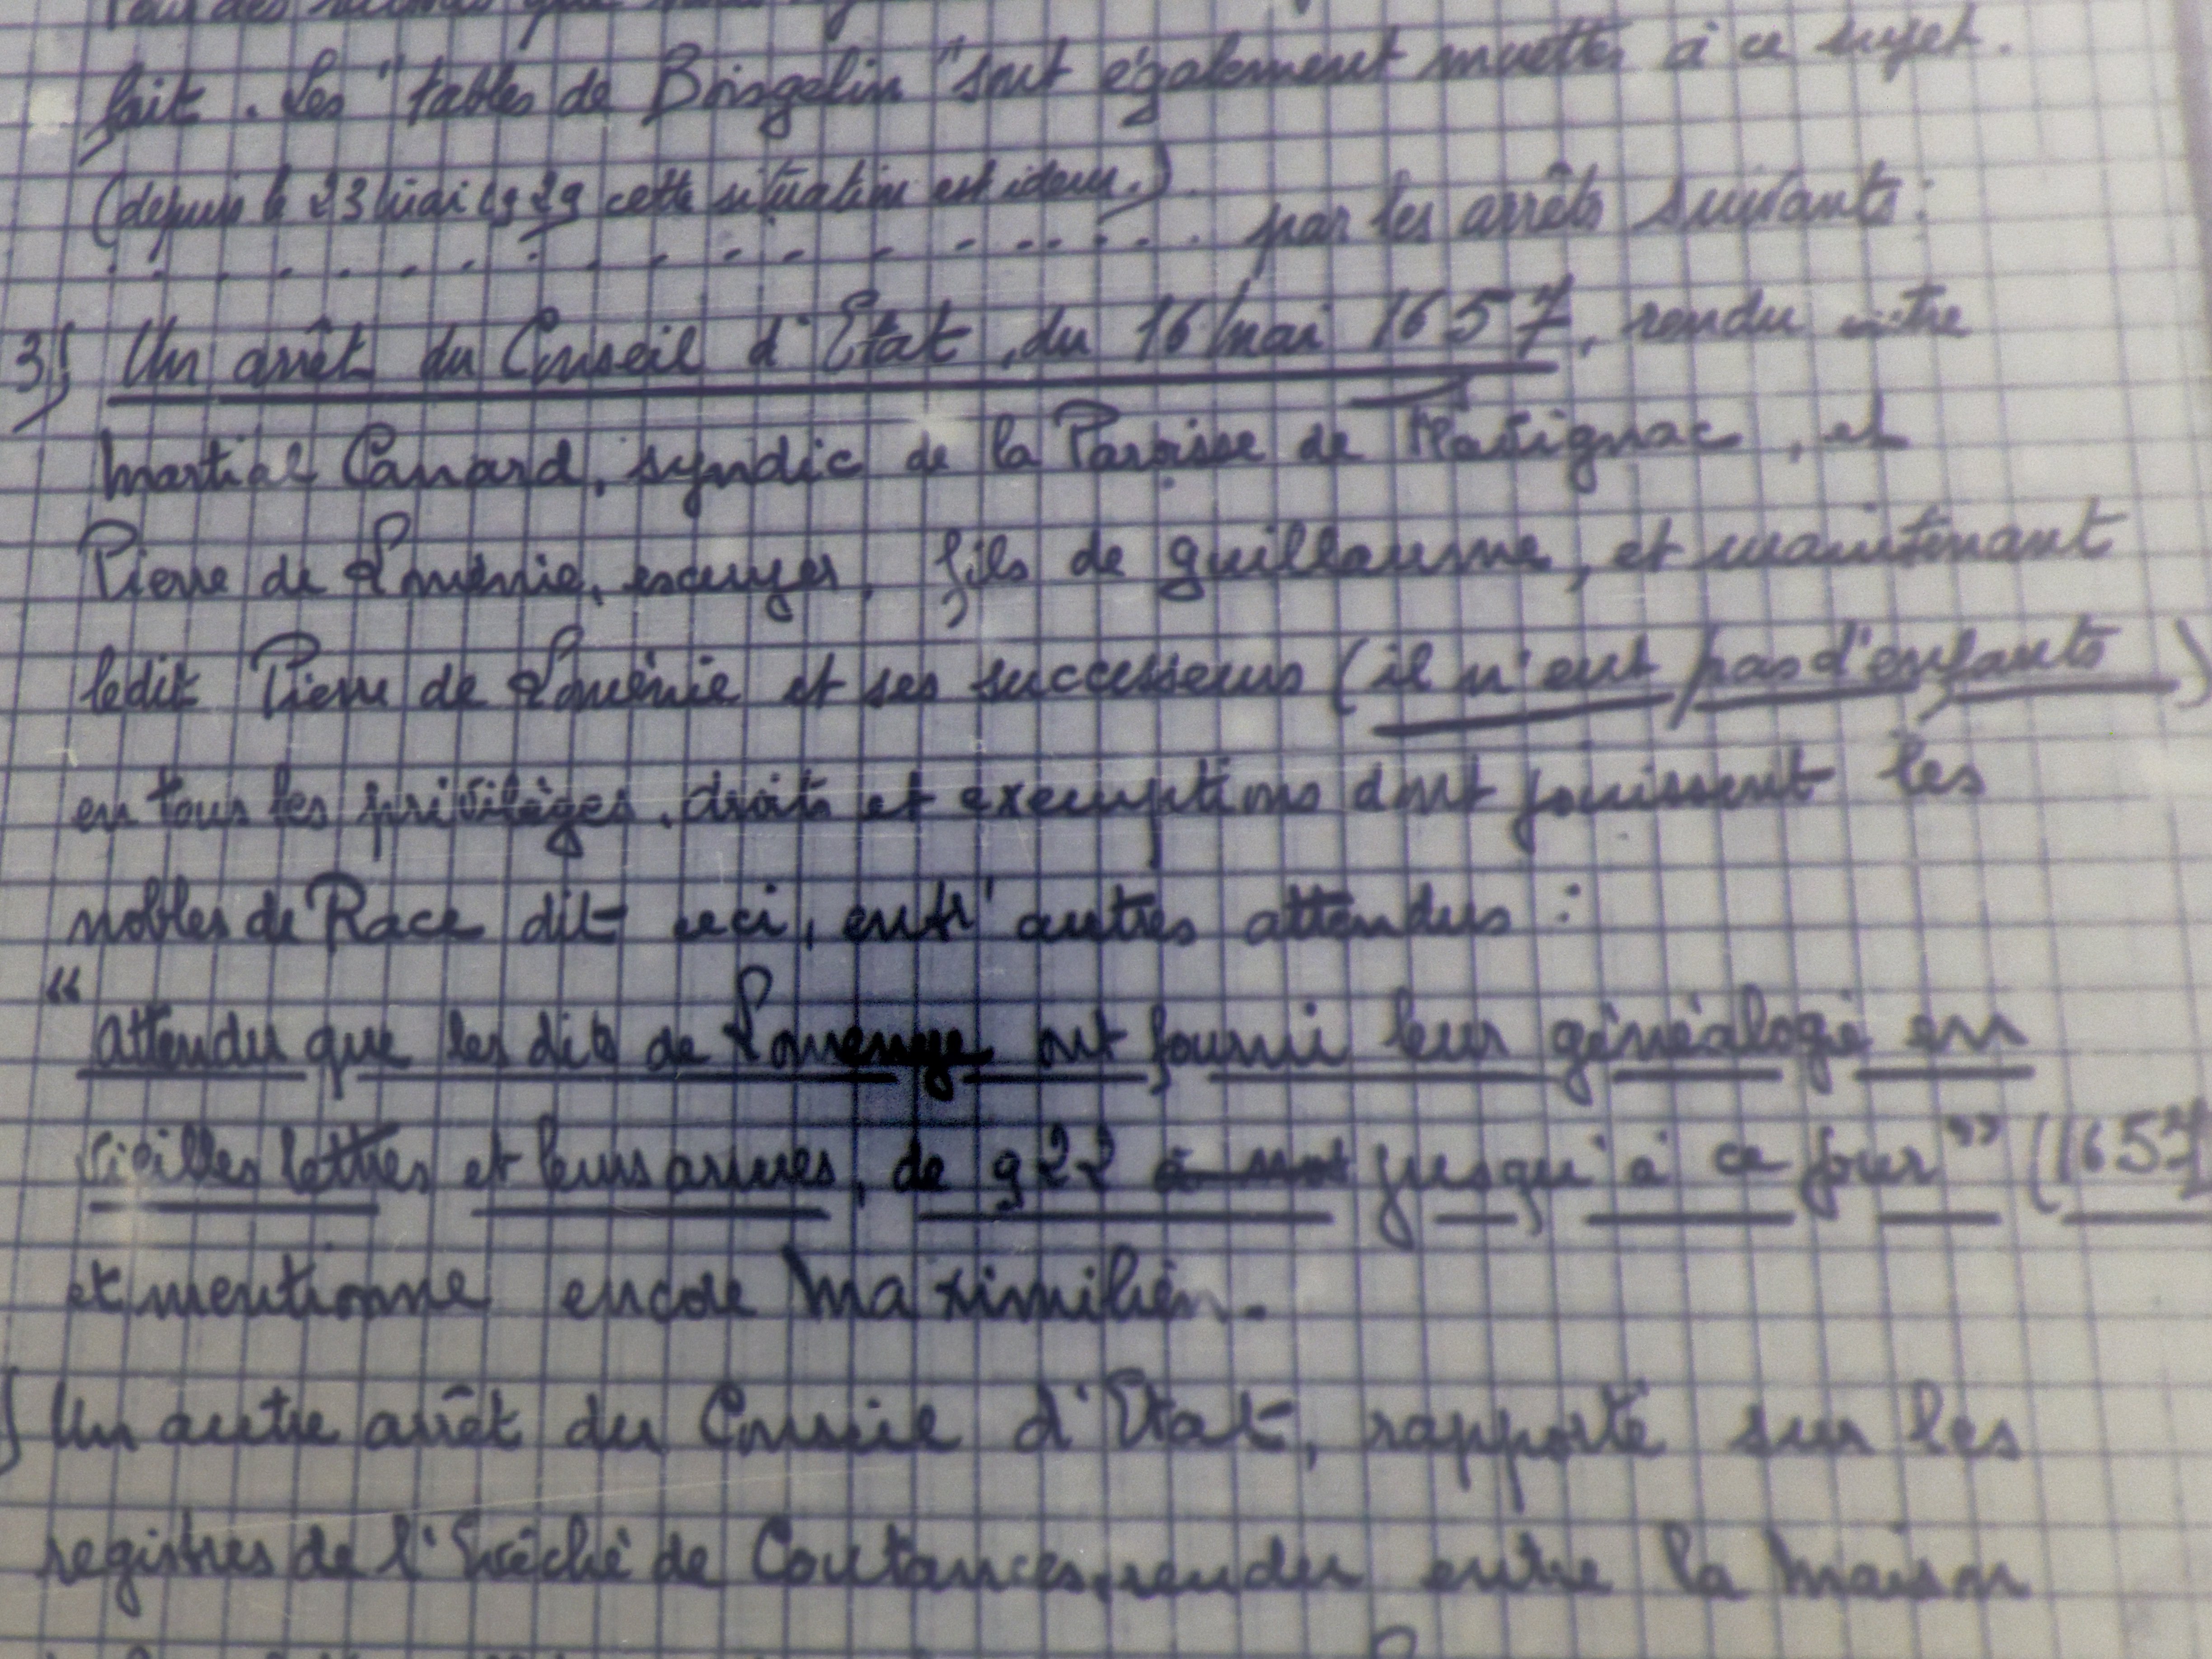 fait. Les "tables de Boisgelin" sont également muettes à ce sujet.
(depuis le 23 mai 1929 cette situation est idem.)
par les arrêts suivants:
3) Un arrêt du Conseil d'Etat, du 16 mai 1657, rendu entre
Martial Canard, syndic de la Paroisse de Flavignac, et
Pierre de Loménie, escuyer, fils de Guillaume, et maintenant
ledit Pierre de Loménie et ses successeurs (il n'eut pas d'enfants)
en tous les privilèges, droits et exemptions dont jouissent les
nobles de Race dit ceci, entr'autres attendus :
"attendu que les dits de Lomenye ont fourni leur généalogie en
vieilles lettres et leurs armes, de 922 jusqu'à ce jour" (1657
et mentionne encore Maximilien.
) Un autre arrêt du Conseil d'Etat, rapporté sur les
registres de l'Evêché de Coutances, rendu entre la Maison